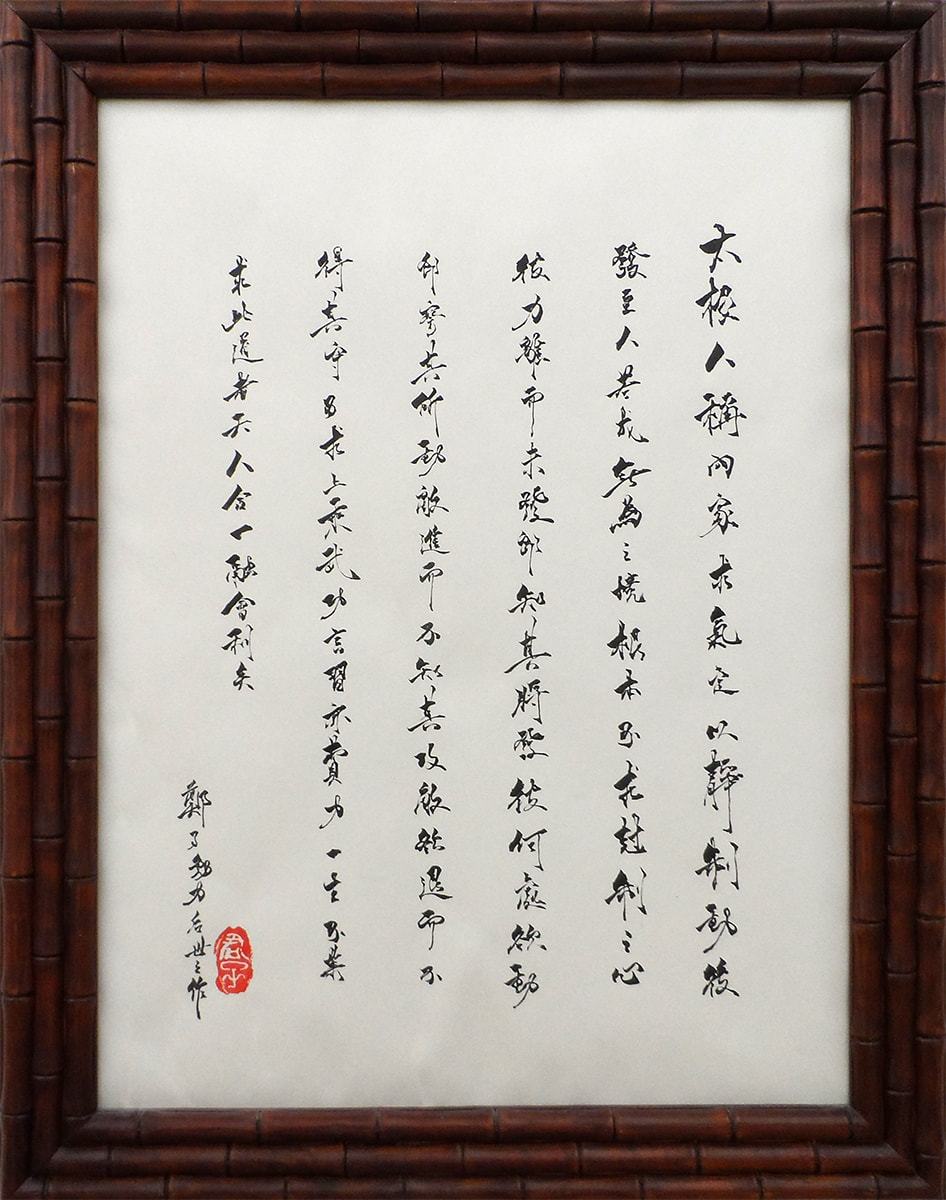 太極人稱內家求氣定以靜制動後
發至人若成無為之境根本不求尅制之心
彼力離而未發即知其將發彼何處欲動
即穹其所動敵進而不知其攻敵欲退而不
得其守多求上乘武功言習亦費力一言不棄
求此道者天人合一融會利矣
鄭子勉力后世之作
君子